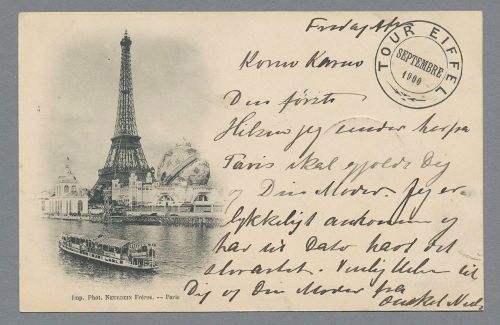 Fredag Aften
TOUR EIFFEL
SEPTEMBRE
1900
Den første
Hilsen jeg sender herfra
Paris skal gjelde Dig
og Din Moder. Jeg er
lykkeligt ankommen og
har til Dato havt det
storartet. Venlig Hilsen til
Dig og Din Moder fra
Onkel
Imp. Phot. NEURDEIN Frères. — Paris